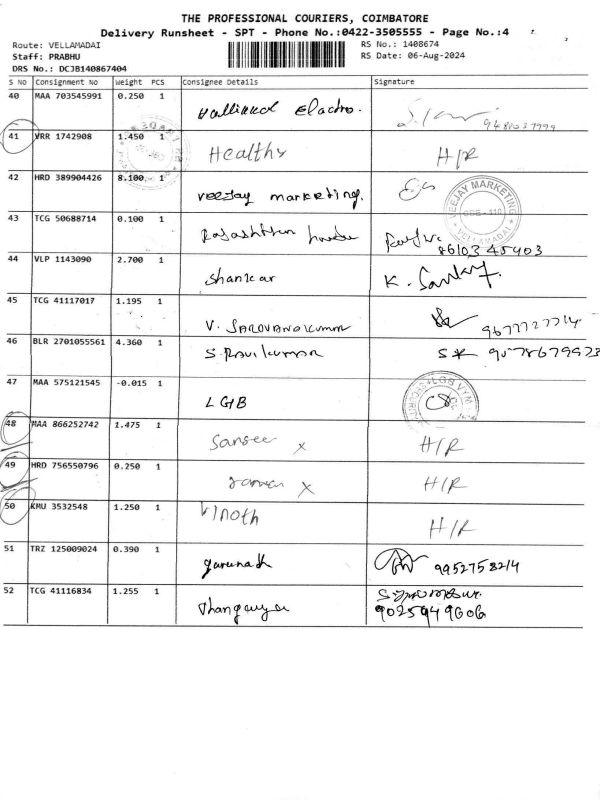 THE PROFESSIONAL COURIERS, COIMBATORE
Delivery Runsheet - SPT - Phone No.:0422-3505555 - Page No.:4
Route: VELLAMADAI
RS No.: 1408674
Staff: PRABHU
RS Date: 06-Aug-2024
DRS No.: DCJB140867404
S NO Consignment No Weight PCS Consignee Details Signature
40 MAA 703545991 0.250 1
9488037999
41 VRR 1742908 1.450 1
Healthy H/R
42 HRD 389904426 8.100 1
veejay marketing. VEEJAY MARKETING VELLAMADAI
43 TCG 50688714 0.100 1
8610345403
44 VLP 1143090 2.700 1
Shankar K. Sankar
45 TCG 41117017 1.195 1
V. SAROVANAKUMAR 9677727714
46 BLR 2701055561 4.360 1
S. Ravikumar SK
47 MAA 575121545 -0.015 1
LGB
48 MAA 866252742 1.475 1
x H/R
49 HRD 756550796 0.250 1
x H/R
50 KMU 3532548 1.250 1
Vinoth H/R
51 TRZ 125009024 0.390 1
gurunath 9952758214
52 TCG 41116834 1.255 1
9025949606